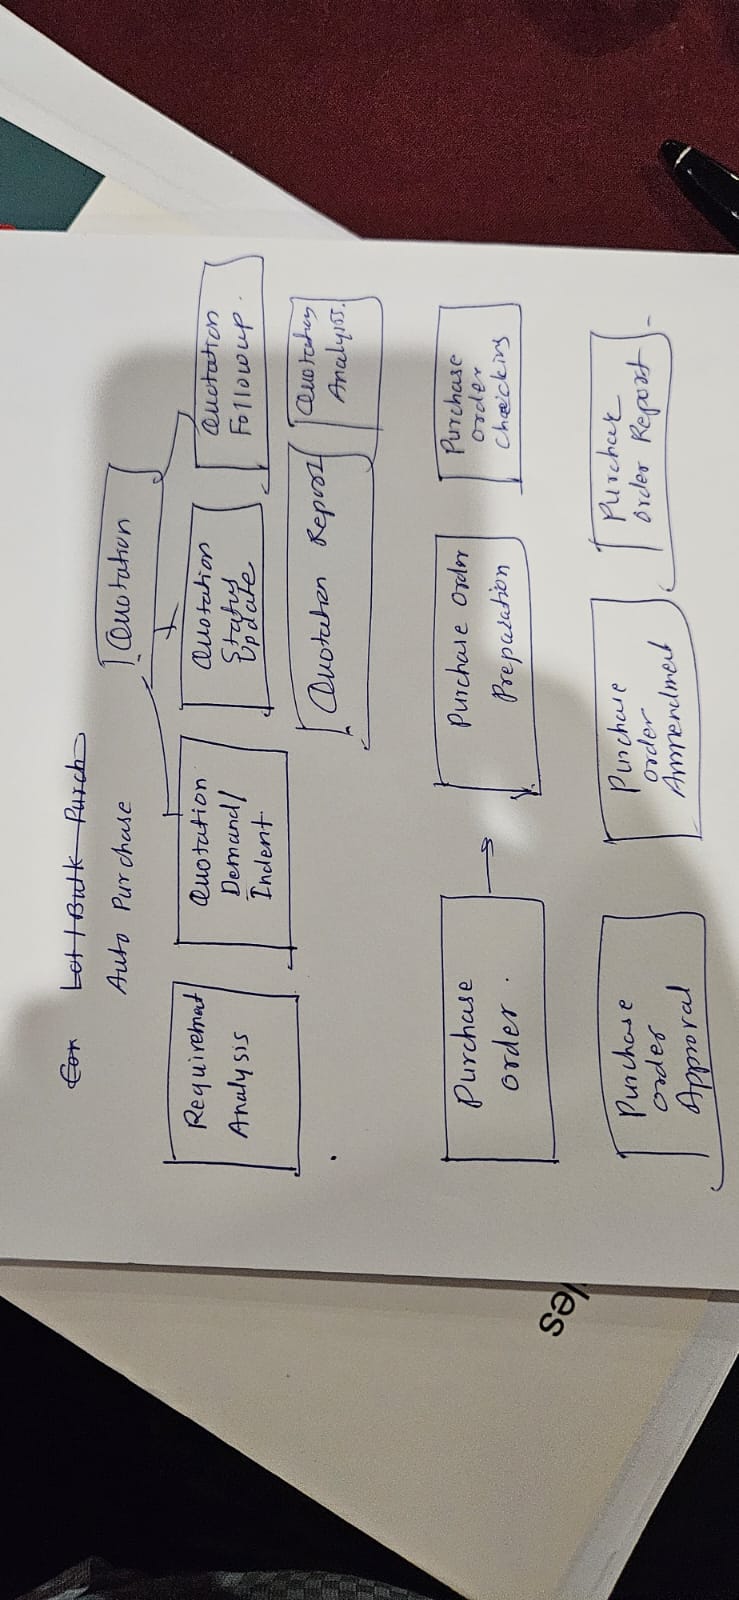 For Lot / Bulk Purch
Auto Purchase
Quotation
Requirement
Analysis
Quotation
Demand/
Indent
Quotation
Status
Update
Quotation
Followup.
Quotation Report
Quotation
Analysis.
Purchase
order.
Purchase order
Preparation
Purchase
order
Checking
Purchase
order
Approval
Purchase
order
Ammendment
Purchase
order Report
les